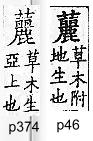 䕻
草木附
地生也
p46
䕻
草木生
亞上也
p374